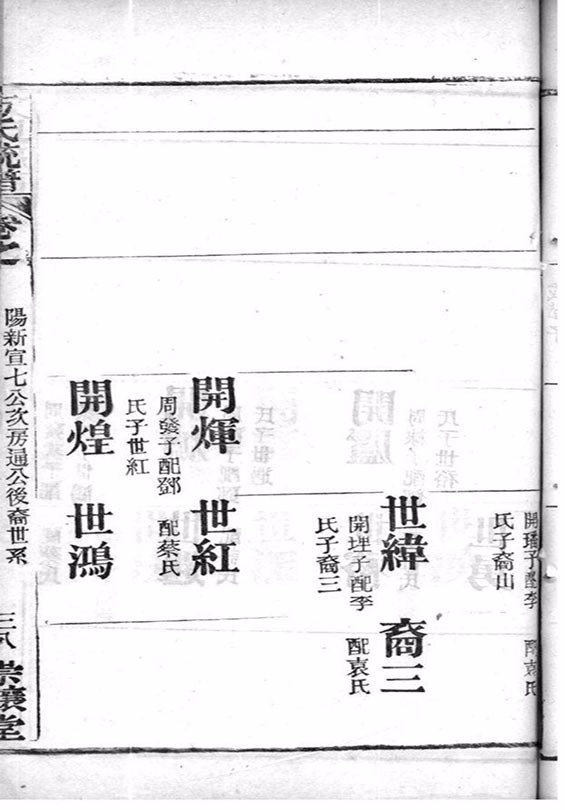 開璠子配李
氏子裔山
配袁氏
世緯 裔三
開埋子配李
氏子裔三
配袁氏
開煇 世紅
周發子配鄧
氏子世紅
配蔡氏
開煌 世鴻
氏統譜
卷之
陽新宣七公次房通公後裔世系
三八
崇讓堂